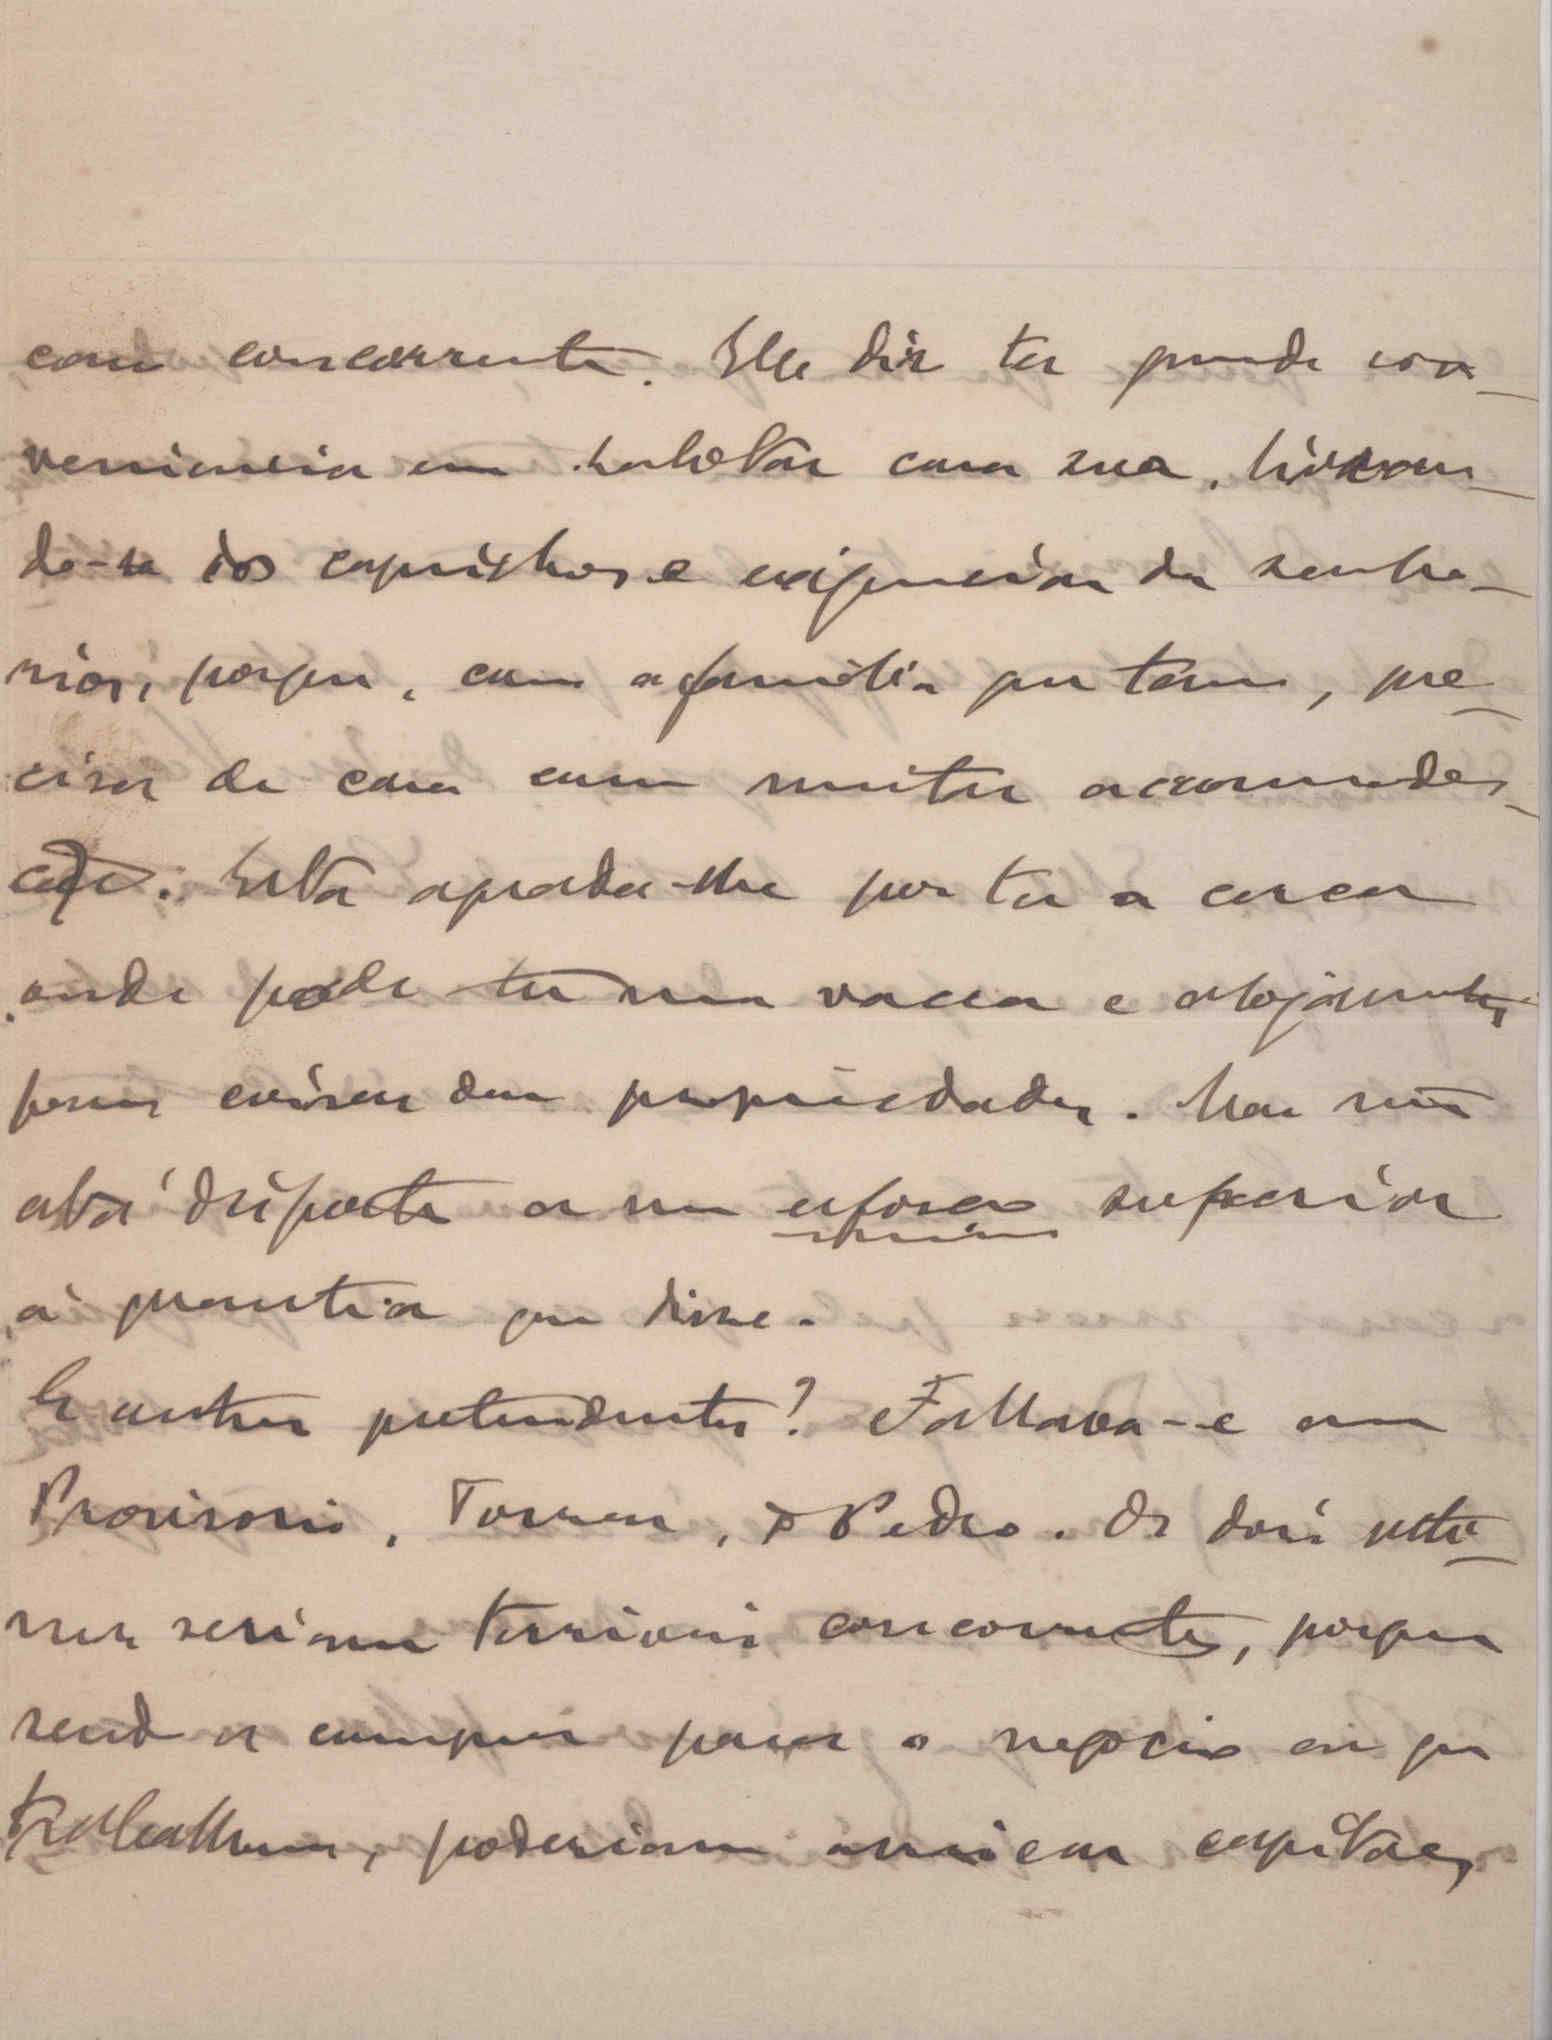 como concorrente. Elle diz ter grande con-
veniencia em habitar casa sua, livran-
do-se dos caprichos e exigencias de senho-
rios, porque, com a familia que tem, pre-
cisa de casa com muitas accommoda-
ções. Esta agrada-lhe por ter a cerca
onde pode ter uma vacca e alojamentos
para caixas das propriedades. Mas não
está disposto a um esforço superior
á quantia que disse.
E outros pretendentes? Fallava-se em
Provisorio, Torres, D Pedro. Os dois ulti-
mos seriam terriveis concorrentes, porque
sendo a compra para o negocio em que
trabalham, poderiam arriscar capitaes,